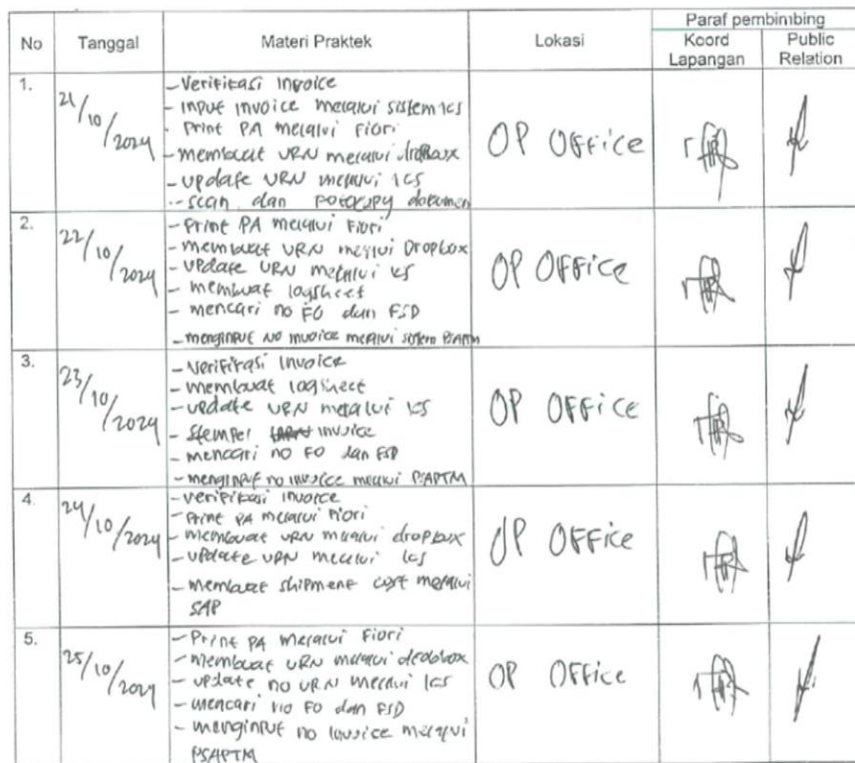 No Tanggal Materi Praktek Lokasi Paraf pembimbing
Koord Lapangan Public Relation
1. 21/10/2024 OP OFFice
- Verifikasi Invoice
- Input invoice melalui sistem ics
- Print PA melalui Fiori
- membuat URN melalui dropbox
- update URN melalui ics
- scan dan potocopy dokumen
2. 22/10/2024 OP OFFice
- Print PA melalui Fiori
- membuat URN melalui Dropbox
- update URN melalui ics
- membuat logsheet
- mencari no FO dan FSD
- menginput no invoice melalui sistem PSAPTM
3. 23/10/2024 OP OFFice
- Verifikasi Invoice
- membuat logsheet
- update URN melalui ics
- Stempel invoice
- mencari no FO dan FSD
- menginput no invoice melalui PSAPTM
4. 24/10/2024 OP OFFice
- verifikasi invoice
- Print PA melalui Fiori
- membuat URN melalui dropbox
- update URN melalui ics
- membuat shipment cost melalui
SAP
5. 25/10/2024 OP OFFice
- Print PA melalui Fiori
- membuat URN melalui dropbox
- update no URN melalui ics
- mencari no FO dan FSD
- menginput no invoice melalui
PSAPTM